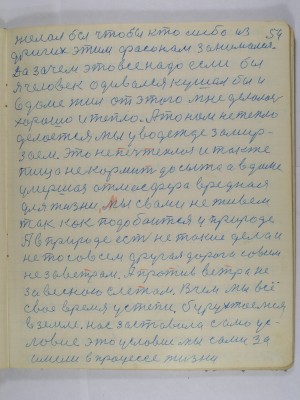 54
желал бы чтобы кто либо из
других этим фасонам занимался.
Да зачем это все надо если был
я человек одевался кушал бы и
в доме жил от этого мне делалось
хорошо и тепло. А то нам не тепло
делается мы у водежде замир-
заем, это не печ теплоя и также
пища не кормит досыта а в доме
умершая атмосфера вредная
для жизни. Мы свами не живем
так как подобается у природе
Я в природе есть не такие дела и
не то совсем другая дорога совсем
не заветрам. А против ветра не
за весною с летом. В чем мы всё
своё время устепи, бурухтаемся
в земле. нас заставила само ус-
ловие это условие мы сами за
имели в процессе жизни